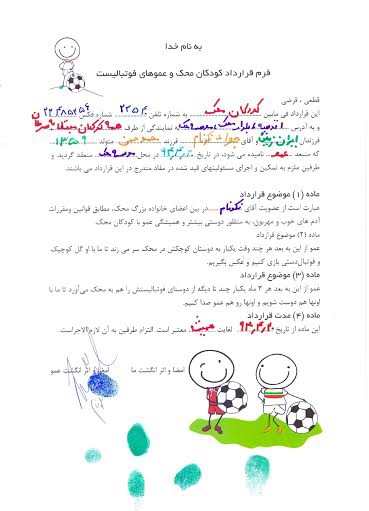 به نام خدا
فرم قرارداد کودکان محک و عموهای فوتبالیست
قطعی ، قرضی
این قرارداد فی مابین کودکان محک به شماره تلفن شماره فکس
و به آدرس نمایندگی از طرف
فرزندان ایران زمین آقای جواد نکونام فرزند متولد ۱۳۵۹
که منبعد عمو نامیده می شود، در تاریخ ۹۳،۴،۲ در محل منعقد گردید و
طرفین ملزم به تمکین و اجرای مسئولیتهای قید شده در مفاد مندرج در این قرارداد می باشند.
ماده (۱) موضوع قرارداد
عبارت است از عضویت آقای نکونام در بین اعضای خانواده بزرگ محک، مطابق قوانین ومقررات
آدم های خوب و مهربون، به منظور دوستی بیشتر و همیشگی عمو با کودکان محک.
ماده (۲) موضوع قرارداد
عمو از این به بعد هر چند وقت یکبار به دوستان کوچکش در محک سر می زند تا ما با او گل کوچیک
و فوتبال‌دستی بازی کنیم و عکس بگیریم.
ماده (۳) موضوع قرارداد
عمو از این به بعد هر ۳ ماه یکبار چند تا دیگه از دوستای فوتبالیستش را هم به محک می‌آورد تا ما با
اونها هم دوست شویم و اونها رو هم عمو صدا کنیم.
ماده (۴) مدت قرارداد
این ماده از تاریخ ۹۳،۴،۲ لغایت همیشه معتبر است. التزام طرفین به آن لازم الاجراست.
امضا و اثر انگشت ما امضا و اثر انگشت عمو